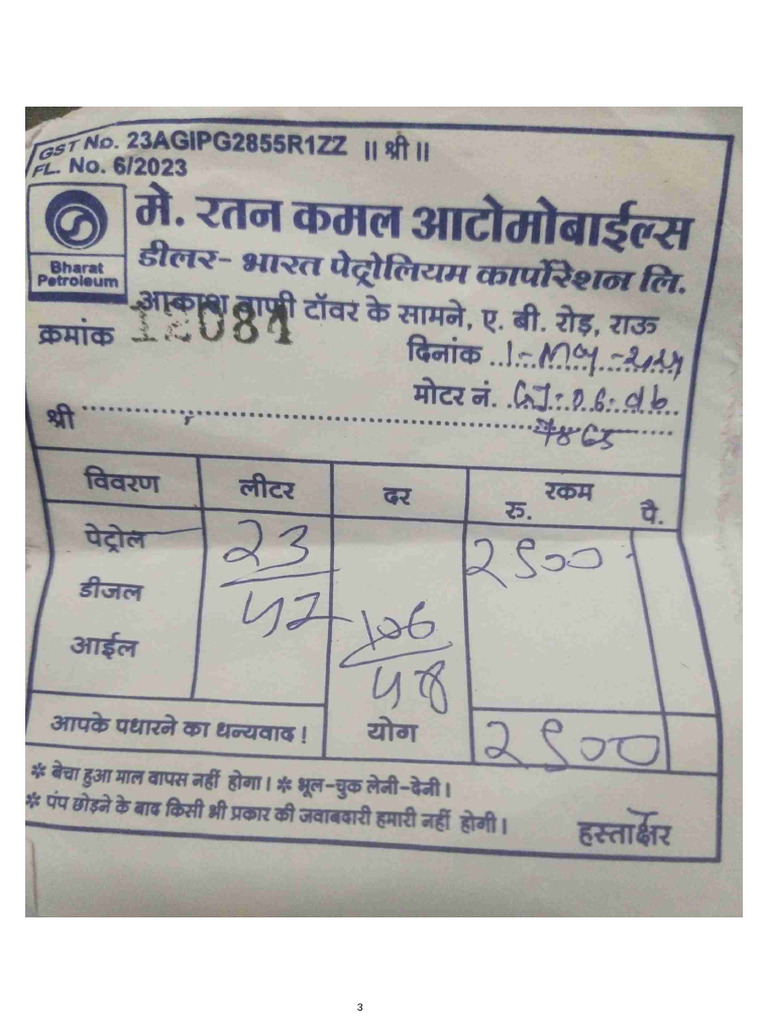 GST No. 23AGIPG2855R1ZZ ॥ श्री ॥
FL. No. 6/2023
Bharat Petroleum
मे. रतन कमल आटोमोबाईल्स
डीलर- भारत पेट्रोलियम कार्पोरेशन लि.
आकाश वाणी टॉवर के सामने, ए. बी. रोड़, राऊ
क्रमांक 12081
दिनांक 1-May-
मोटर नं. GJ-06-
श्री
विवरण लीटर दर रकम
रु. पै.
पेट्रोल 23 2500
डीजल 47 106
आईल
आपके पधारने का धन्यवाद ! योग 2500
* बेचा हुआ माल वापस नहीं होगा। * भूल-चुक लेनी-देनी।
* पंप छोड़ने के बाद किसी भी प्रकार की जवाबदारी हमारी नहीं होगी।
हस्ताक्षर
3